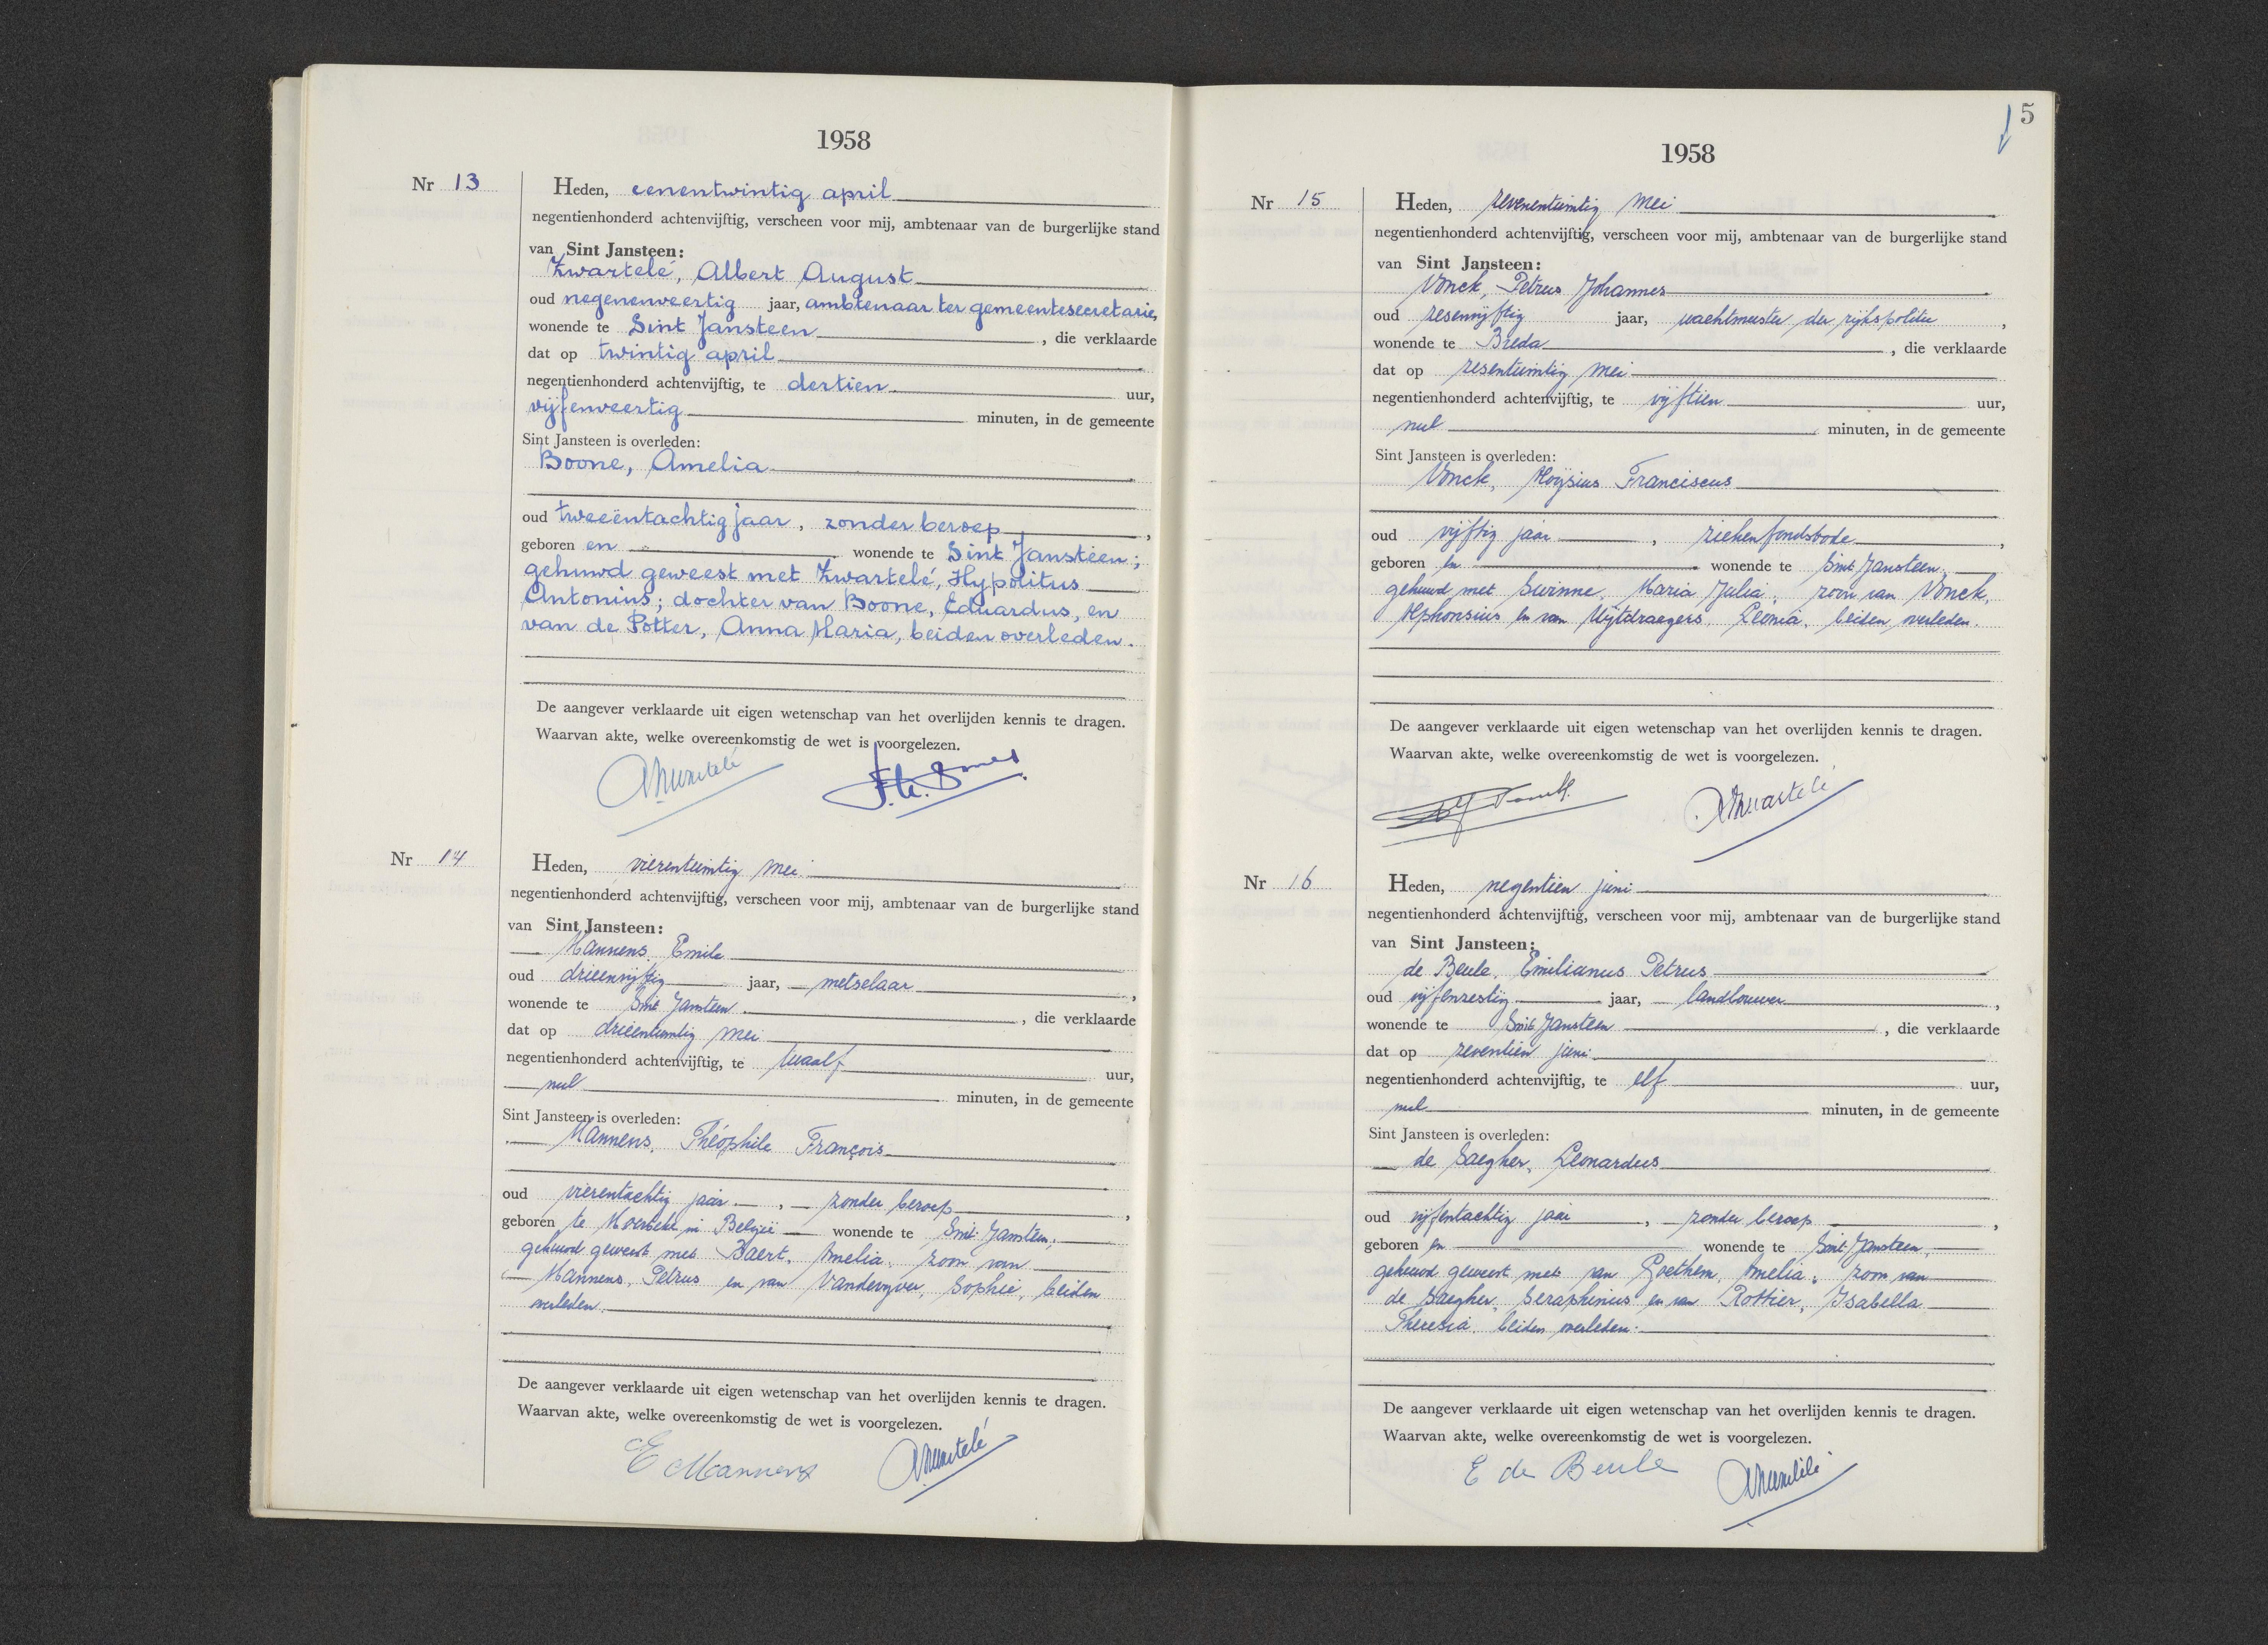 1958
Nr 13
Heden, eenentwintig april
negentienhonderd achtenvijftig, verscheen voor mij, ambtenaar van de burgerlijke stand
van Sint Jansteen:
Zwartelé, Albert August
oud negenenveertig jaar, ambtenaar ter gemeentesecretarie,
wonende te Sint Jansteen, die verklaarde
dat op twintig april
negentienhonderd achtenvijftig, te dertien uur,
vijfenveertig minuten, in de gemeente
Sint Jansteen is overleden:
Boone, Amelia
oud tweeëntachtig jaar, zonder beroep,
geboren en wonende te Sint Jansteen;
gehuwd geweest met Zwartelé, Hypolitus
Antonius; dochter van Boone, Eduardus, en
van de Potter, Anna Maria, beiden overleden.
De aangever verklaarde uit eigen wetenschap van het overlijden kennis te dragen.
Waarvan akte, welke overeenkomstig de wet is voorgelezen.
AZwartelé
Nr 14
Heden, vierentwintig mei
negentienhonderd achtenvijftig, verscheen voor mij, ambtenaar van de burgerlijke stand
van Sint Jansteen:
Mannens, Emile
oud drieenvijftig jaar, metselaar,
wonende te Sint Jansteen, die verklaarde
dat op drieentwintig mei
negentienhonderd achtenvijftig, te twaalf uur,
nul minuten, in de gemeente
Sint Jansteen is overleden:
Mannens, Théophile François
oud vierentachtig jaar, zonder beroep,
geboren te Moerbeke in België wonende te Sint Jansteen;
gehuwd geweest met Baert, Amelia, zoon van
Mannens, Petrus en van Vandevyver, Sophie, beiden
overleden.
De aangever verklaarde uit eigen wetenschap van het overlijden kennis te dragen.
Waarvan akte, welke overeenkomstig de wet is voorgelezen.
E Mannens AZwartelé
5
1958
Nr 15
Heden, zevenentwintig mei
negentienhonderd achtenvijftig, verscheen voor mij, ambtenaar van de burgerlijke stand
van Sint Jansteen:
Vonck, Petrus Johannes
oud zesenvijftig jaar, wachtmeester der rijkspolitie,
wonende te Breda, die verklaarde
dat op zesentwintig mei
negentienhonderd achtenvijftig, te vijftien uur,
nul minuten, in de gemeente
Sint Jansteen is overleden:
Vonck, Aloÿsius Franciscus
oud vijftig jaar, ziekenfondsbode,
geboren en wonende te Sint Jansteen,
gehuwd met Swinne, Maria Julia, zoon van Vonck,
Alphonsius en van Uijtdraegers, Leonia, beiden overleden.
De aangever verklaarde uit eigen wetenschap van het overlijden kennis te dragen.
Waarvan akte, welke overeenkomstig de wet is voorgelezen.
AZwartelé
Nr 16
Heden, negentien juni
negentienhonderd achtenvijftig, verscheen voor mij, ambtenaar van de burgerlijke stand
van Sint Jansteen:
de Beule, Emilianus Petrus
oud vijfenzestig jaar, landbouwer,
wonende te Sint Jansteen, die verklaarde
dat op zeventien juni
negentienhonderd achtenvijftig, te elf uur,
nul minuten, in de gemeente
Sint Jansteen is overleden:
de Saegher, Leonardus
oud vijfentachtig jaar, zonder beroep,
geboren en wonende te Sint Jansteen,
gehuwd geweest met van Goethem, Amelia, zoon van
de Saegher, Seraphinus en van Rottier, Isabella
Theresia, beiden overleden.
De aangever verklaarde uit eigen wetenschap van het overlijden kennis te dragen.
Waarvan akte, welke overeenkomstig de wet is voorgelezen.
E de Beule AZwartelé